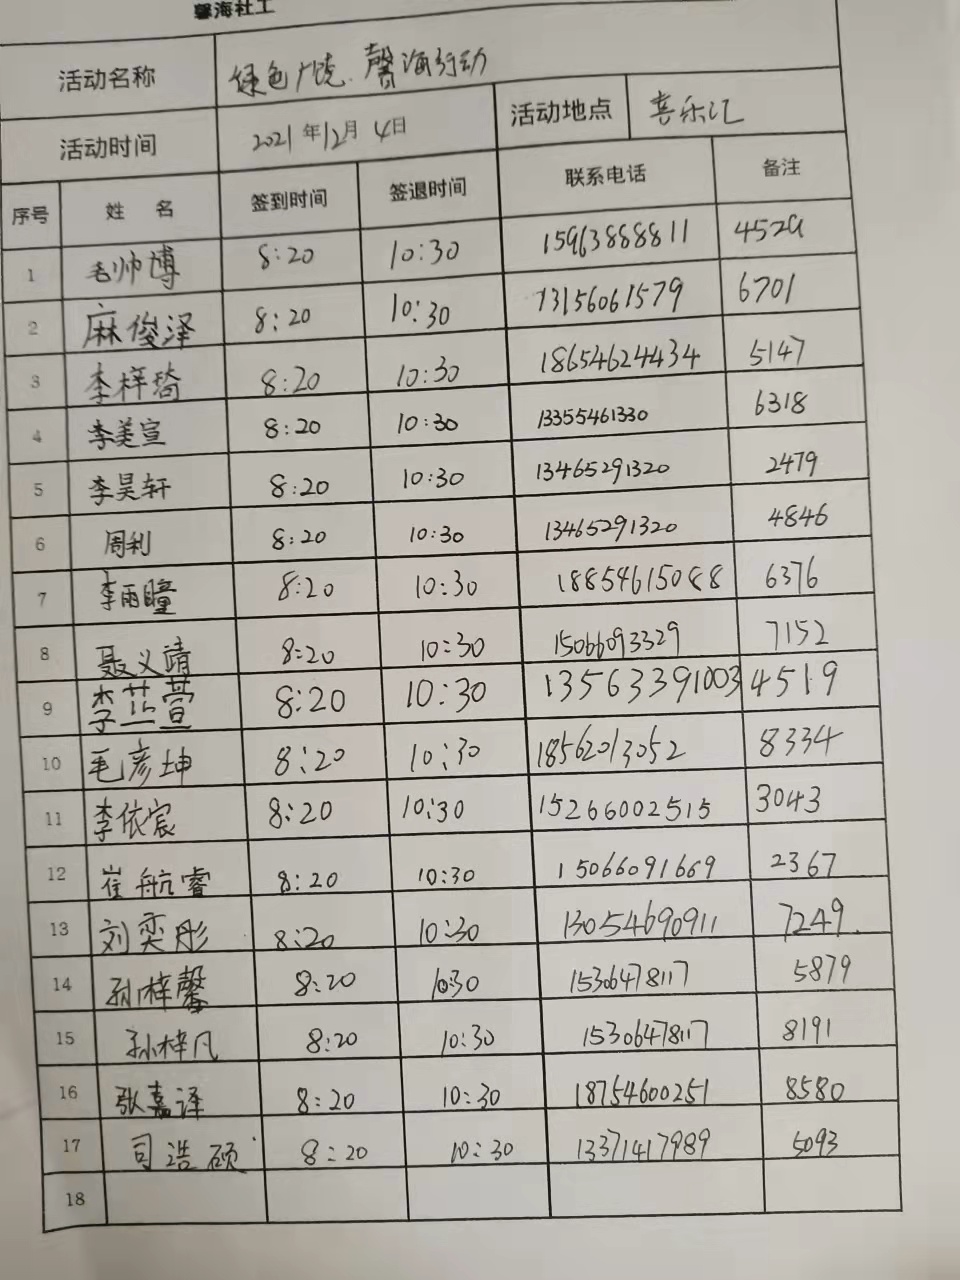 馨海社工
活动名称 绿色广饶.馨海行动
活动时间 2021年12月4日 活动地点 喜乐汇
序号 姓名 签到时间 签退时间 联系电话 备注
1 毛帅博 8:20 10:30 15963888811 4529
2 麻俊泽 8:20 10:30 13156061579 6701
3 李梓琦 8:20 10:30 18654624434 5147
4 李美宣 8:20 10:30 13355461330 6318
5 李昊轩 8:20 10:30 13465291320 2479
6 周利 8:20 10:30 13465291320 4846
7 李雨瞳 8:20 10:30 18854615088 6376
8 聂义靖 8:20 10:30 15066093329 7152
9 李芸萱 8:20 10:30 13563391003 4519
10 毛彦坤 8:20 10:30 18562013052 8334
11 李依宸 8:20 10:30 15266002515 3043
12 崔航睿 8:20 10:30 15066091669 2367
13 刘奕彤 8:20 10:30 13054690911 7249.
14 孙梓馨 8:20 10:30 15306478117 5879
15 孙梓凡 8:20 10:30 15306478117 8191
16 张嘉译 8:20 10:30 18754600251 8580
17 司浩硕 8:20 10:30 13371417989 5093
18